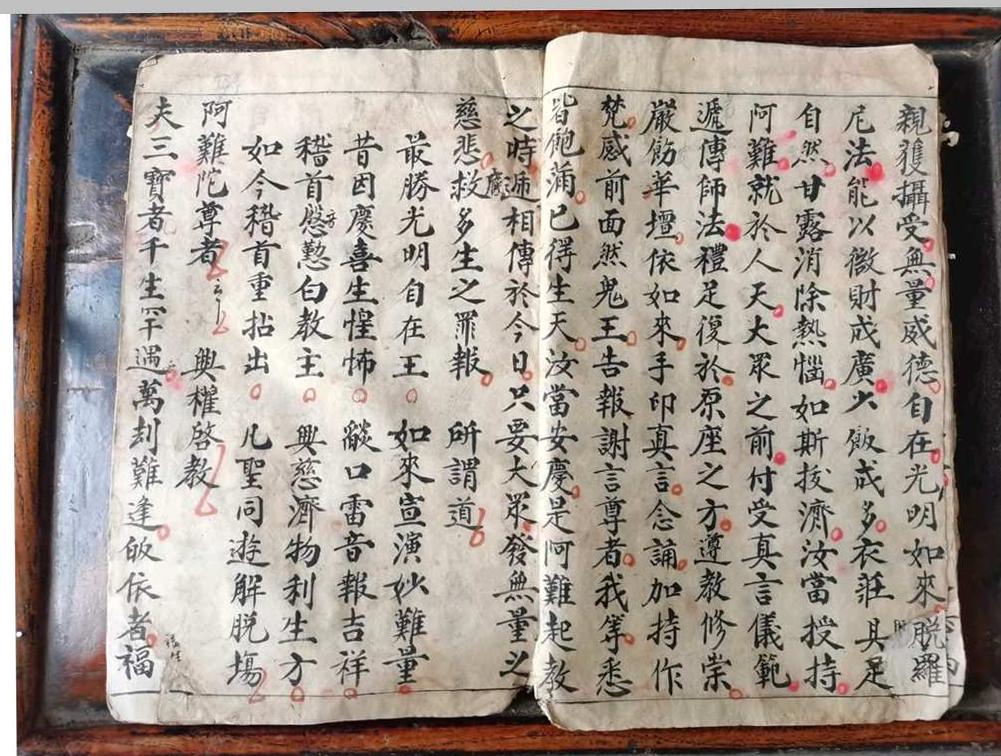 親獲攝受無量威德自在光明如來脫羅
尼法能以微財成廣火飯成多衣莊具足
自然甘露消除熱惱如斯拔濟汝當授持
阿難就於人天大眾之前付受真言儀範
遞傳師法禮足復於原座之方遵教修崇
嚴飾華壇依如來手印真言念誦加持作
梵感前面然鬼王告報謝言尊者我等悉
皆飽滿已得生天汝當安慶是阿難起教
之時遞相傳於今日只要大眾發無量之
慈悲救多生之罪報 所謂道
最勝光明自在王 如來宣演妙難量
昔因慶喜生惶怖 燄口雷音報吉祥
稽首慇懃白教主 興慈濟物利生方
如今稽首重拈出 凡聖同遊解脫場
阿難陀尊者 興權啓教
夫三寶者千生罕遇萬刦難逢皈依者福